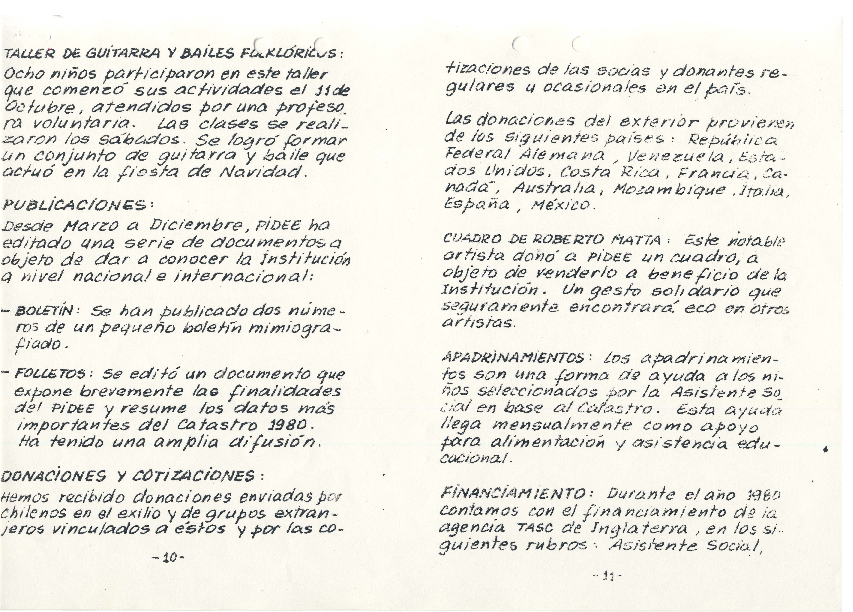 TALLER DE GUITARRA Y BAILES FOLKLÓRICOS:
Ocho niños participaron en este taller
que comenzó sus actividades el 11 de
Octubre, atendidos por una profeso
ra voluntaria. Las clases se reali-
zaron los sábados. Se logró formar
un conjunto de guitarra y baile que
actuó en la fiesta de Navidad.
PUBLICACIONES:
Desde Marzo a Diciembre, PIDEE ha
editado una serie de documentos a
objeto de dar a conocer la Institución
a nivel nacional e internacional:
- BOLETÍN: Se han publicado dos núme-
ros de un pequeño boletín mimiogra-
fiado.
- FOLLETOS: Se editó un documento que
expone brevemente las finalidades
del PIDEE y resume los datos más
importantes del Catastro 1980.
Ha tenido una amplia difusión.
DONACIONES Y COTIZACIONES:
Hemos recibido donaciones enviadas por
chilenos en el exilio y de grupos extran-
jeros vinculados a éstos y por las co-
-10-
tizaciones de las socias y donantes re-
gulares u ocasionales en el país.
Las donaciones del exterior provienen
de los siguientes países: República
Federal Alemana, Venezuela, Esta-
dos Unidos, Costa Rica, Francia, Ca-
nadá, Australia, Mozambique, Italia,
España, México.
CUADRO DE ROBERTO MATTA: Este notable
artista donó a PIDEE un cuadro, a
objeto de venderlo a beneficio de la
Institución. Un gesto solidario que
seguramente encontrará eco en otros
artistas.
APADRINAMIENTOS: Los apadrinamien-
tos son una forma de ayuda a los ni-
ños seleccionados por la Asistente So
cial en base al Catastro. Esta ayuda
llega mensualmente como apoyo
para alimentación y asistencia edu-
cacional.
FINANCIAMIENTO: Durante el año 1980
contamos con el financiamiento de la
agencia TASC de Inglaterra, en los si-
guientes rubros: Asistente Social,
-11-